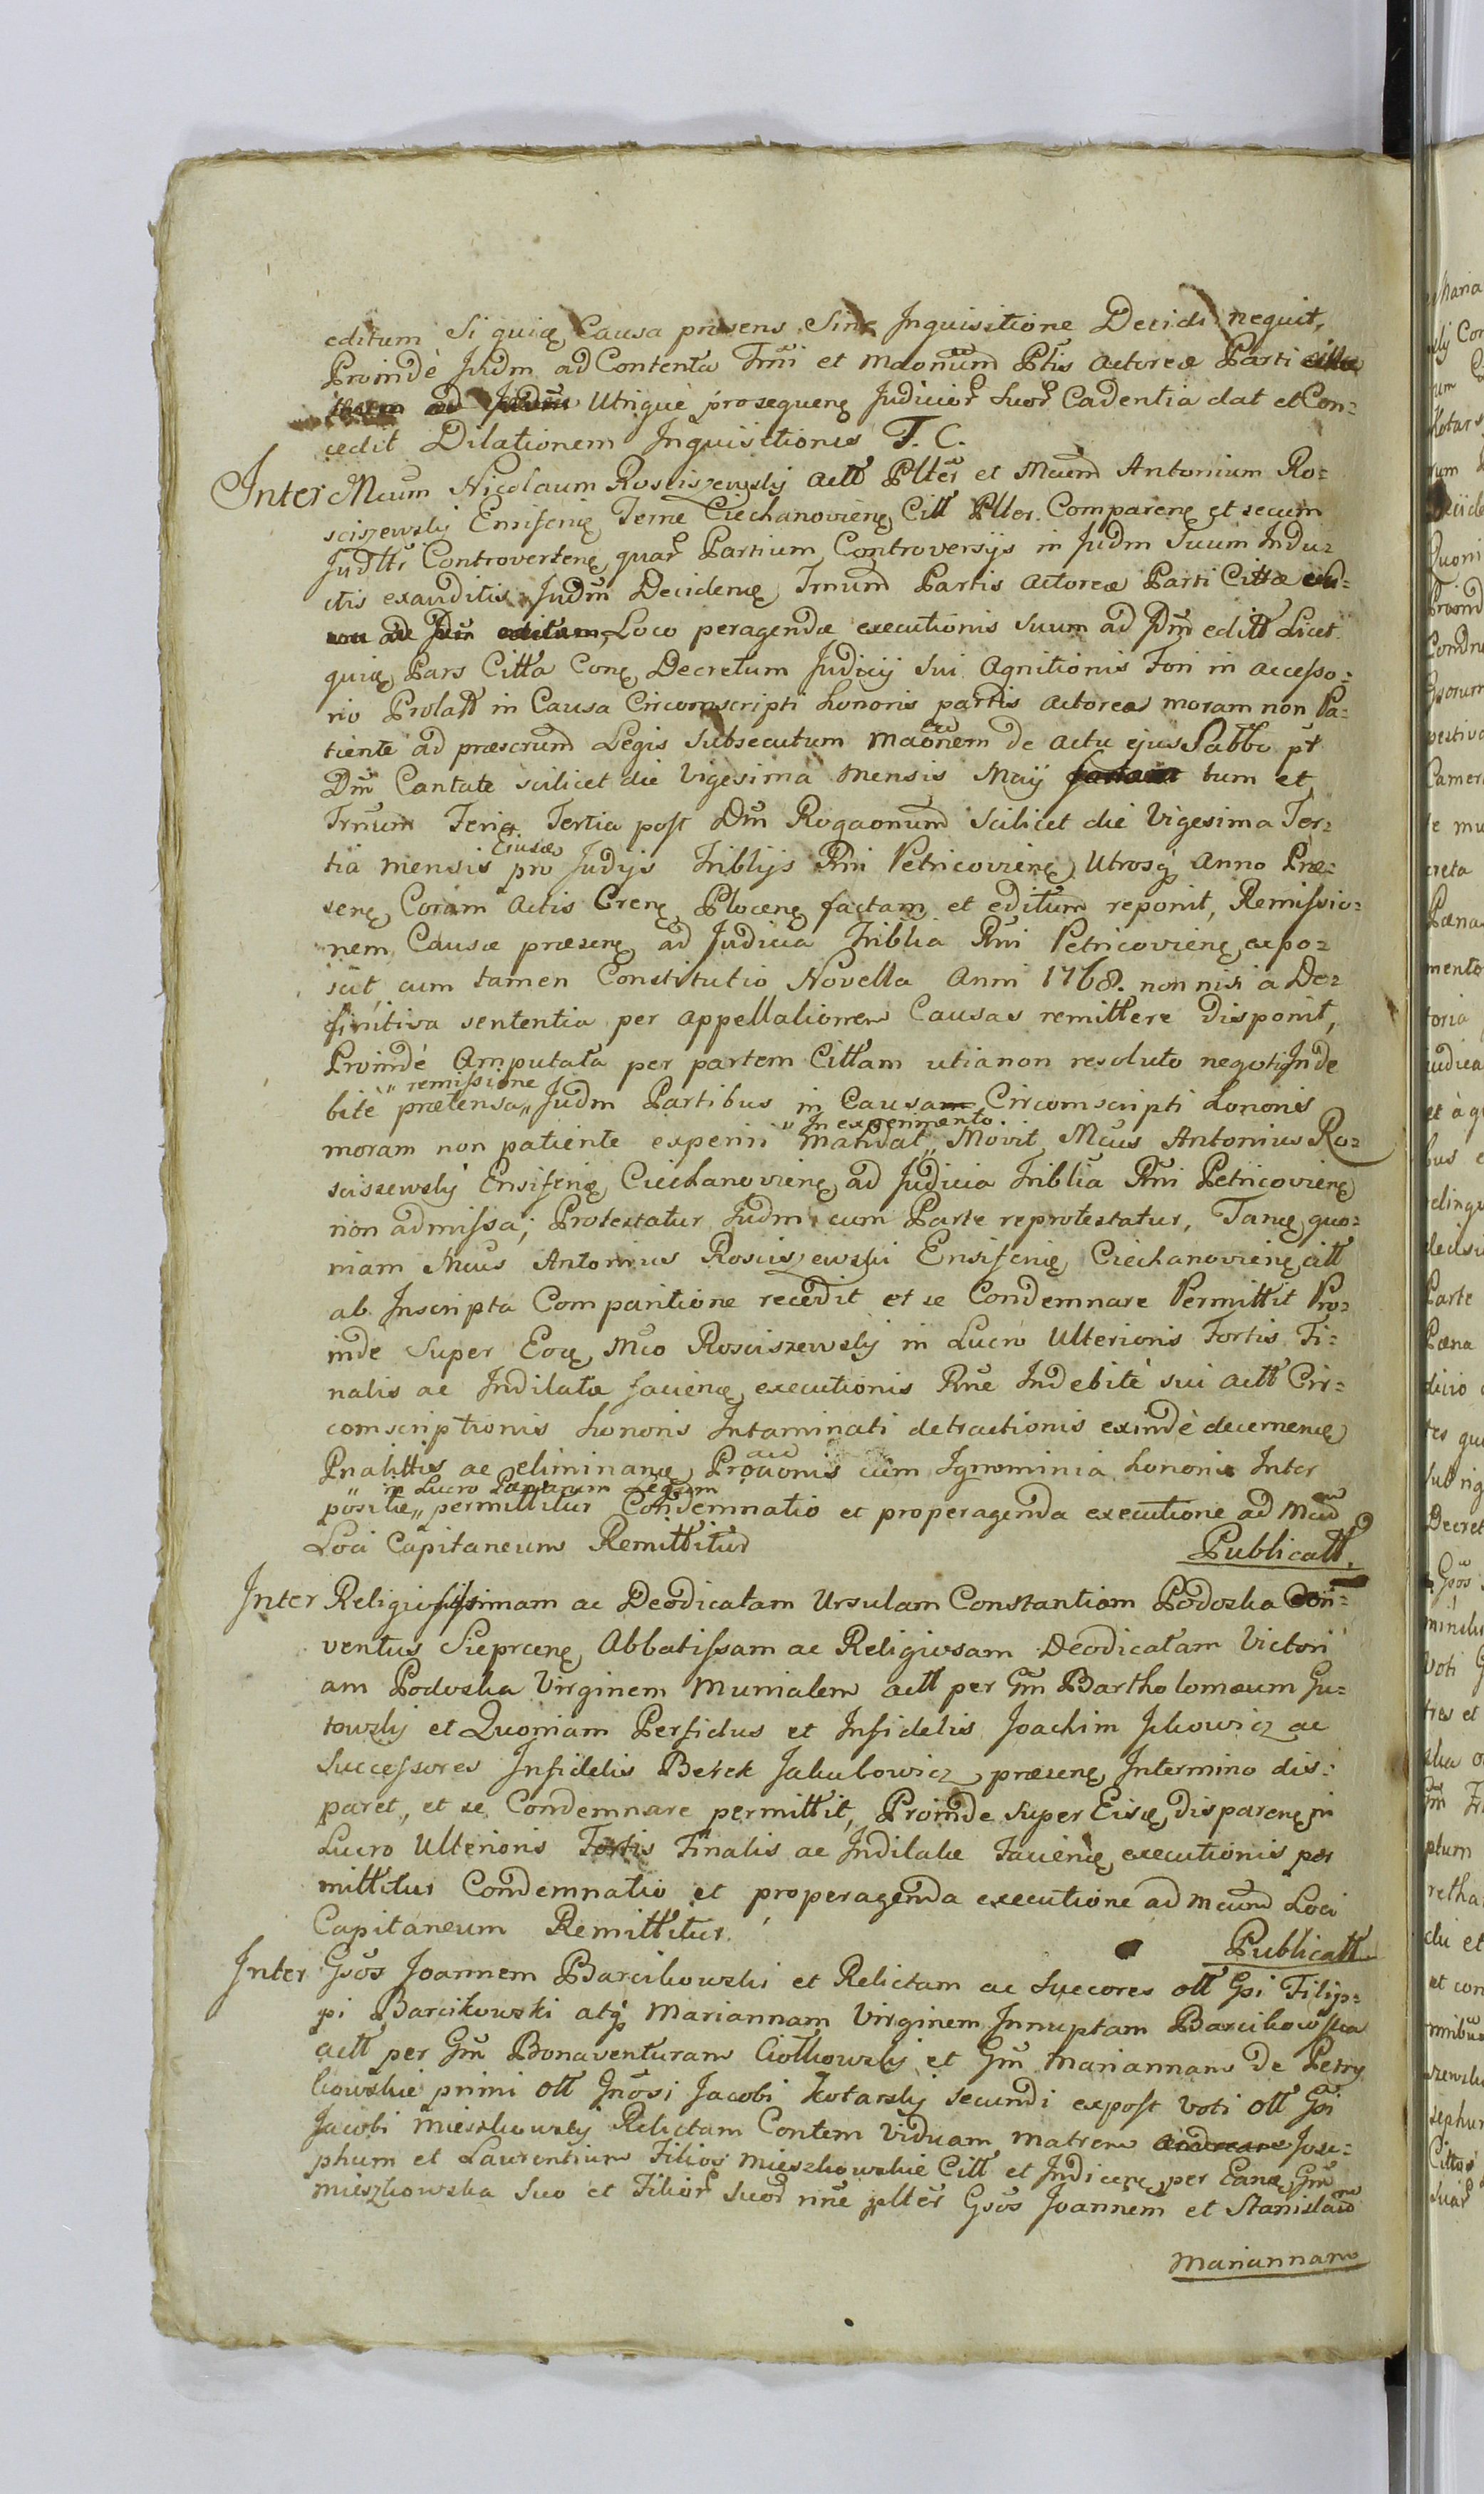 editum Si quiq Causa præsens Sine Inquisitione Decidi nequit,
Proindè Judm ad Contenta Trni et Maonum Ptis Actoreæ Parti
Utriquè prosequenq Judicior Suor Cadentia dat et Con=
cedit Dilationem Inquisitiones T. C.
Inter Mcum Nicolaum Rosciszewsky actt Plter et Mcum Antonium Ro=
sciszewsky Ensiferiq Terræ Ciechanovienq Citt Plter. Comparenq et secum
Judltr Controvertenq quar Partium Controversijs in Judm Suum Indu=
ctis exauditis Judm Decidenq Trnum Partis Actoreæ Parti Cittæ
Loco peragendæ executionis suum ad Pm editt Licet
quiq Pars Citta Conq Decretum Judicij Sui Agnitionis Fori in accesso=
rio Prolatt in Causa Circumscripti honoris partis actoreæ moram non Pa=
tiente ad præscrum Legis Subsecutum Maonem de actu ejus Sabbo pt
Dm Cantate scilicet die Vigesima Mensis Maij tum et
Trnum Feria Tertia post Dm Rogaonum Scilicet die Vigesima Ter=
tia mensis Ejusdæ pro Judijs Triblijs Rni Petricovienq Utrosq Anno Præ=
senq Coram Actis Crenq Plocenq factam et editum reponit, Remissio=
nem Causæ præsenq ad Judicia Triblia Rni Petricovienq expo=
scit cum tamen Constitutio Novella Anni 1768. non nisi a De=
finitiva sententia per appellationem Causas remittere Disponit,
Proindè Amputata per partem Cittam utianon resoluto negotij Inde
bitè prætensa " remissione " Judm Partibus in Causa Circumscripti honoris
moram non patiente experiri Mandat " In experimento " Movit Mcus Antonius Ro=
sciszewsky Ensiferiq Ciechanovienq ad Judicia Triblia Rni Petricovienq
non admissa; Protestatur Judm cum Parte reprotestatur, Tanq quo=
niam Mcus Antonius Rosciszewski Ensiferiq Ciechanovienq citt
ab Inscripta Comparitione recedit et se Condemnare Permittit Pro=
inde Super Eoq Mco Rosciszewsky in Lucro Ulterioris Fortis Fi=
nalis ac Indilatæ facienq executionis Rne Indebitè sui actt Cir=
comscriptionis honoris Intaminati detractionis exindè decernenq
Pnalittis ac eliminanq Proaonis cum Ignominia honoris Inter
positæ " in Lucro Pænarum Legum " permittitur Condemnatio et properagenda executione ad Mcum
Loci Capitaneum Remittitur
Publicatt.
Inter Religiosissimam ac Deodicatam Ursulam Constantiam Podoska Con=
ventus Sieprcenq Abbatissam ac Religiosam Deodicatam Victori
am Podoska Virginem Munialem actt per Gm Bartholomæum Gu=
towsky et Quoniam Perfidus et Infidelis Joachim Ickowicz ac
Successores Infidelis Berek Jakubowicz præsenq Intermino dis=
paret, et se Condemnare permittit, Proinde Super Eisq disparenq in
Lucro Ulterioris Fortis Finalis ac Indilatæ Facienq executionis per
mittitur Condemnatio et properagenda executione ad Mcum Loci
Capitaneum Remittitur.
Publicatt
Inter Gsos Joannem Barcikowski et Relictam ac Succores ott Gsi Filip=
pi Barcikowski atq Mariannam Virginem Innuptam Barcikowska
actt per Gm Bonaventuram Ciołkowsky et Gm Mariannam De Petry
kowskie primi ott Gnosi Jacobi Kotarsky secundi expost voti ott Gsi
Jacobi Mieszkowsky Relictam Contem Viduam, Matrem Jose=
phum et Laurentium Filios Mieszkowskie Citt et Indicenq per Eanq Gm
Mieszkowska Suo et Filior Suor nne plter Gsos Joannem et Stanislaum
Mariannam